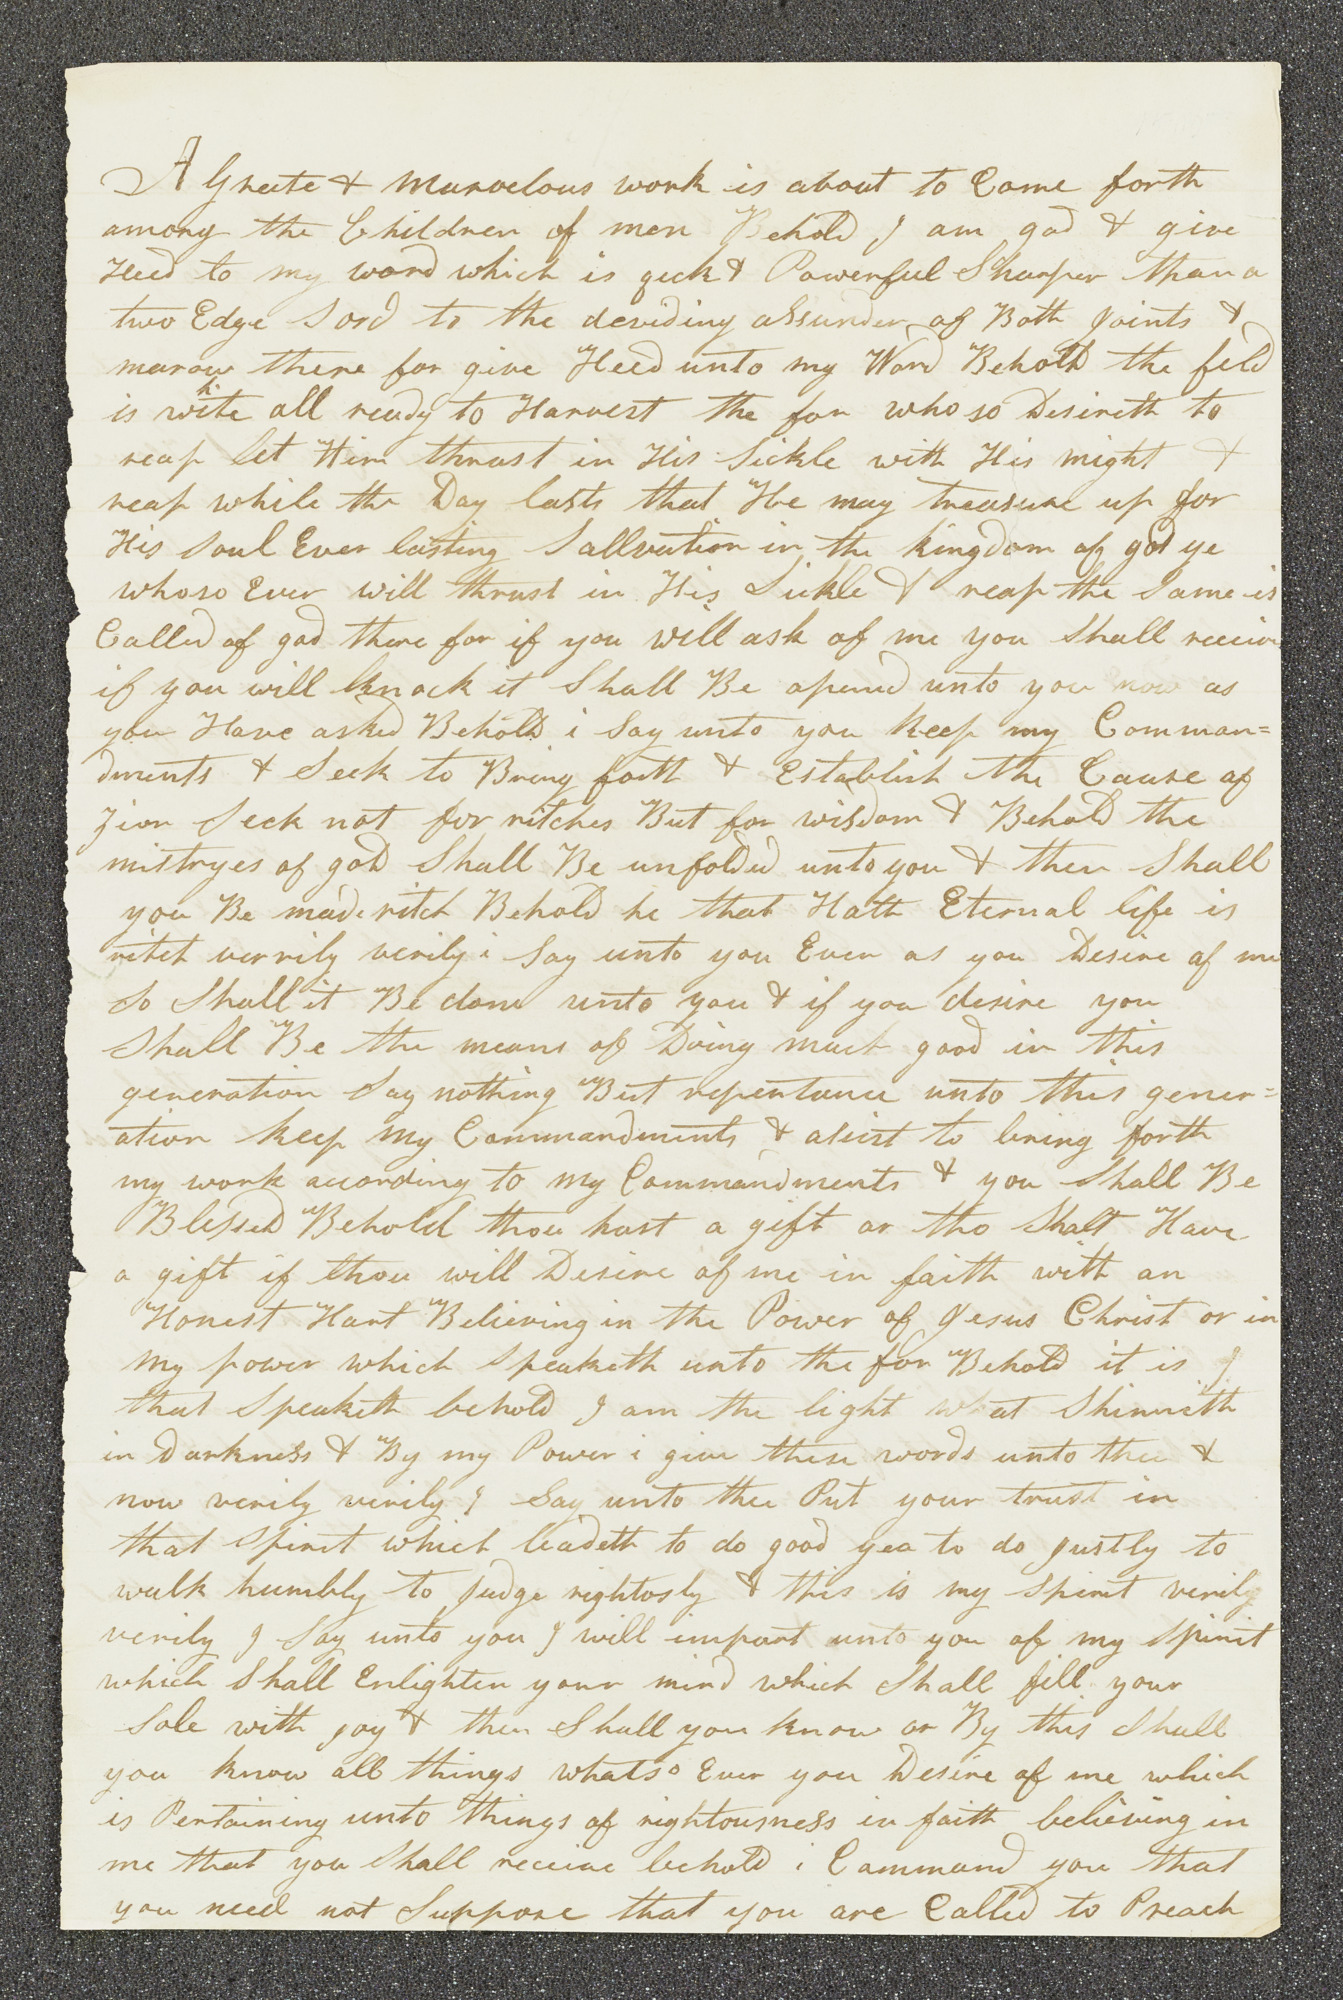 A Greate & Marvelous work is about to Come forth
among the Children of men Behold I am god & give
Heed to my word which is qeck & Powerful Sharper than a
two Edge Sord to the deveding assunder of Both Joints &
marow there for give Heed unto my Word Behold the feld
is white all ready to Harvest the for who so Desireth to
reap let Him thrust in His Sickle with His might &
reap while the Day lasts that He may treasure up for
His Soul Ever lasting Sallvation in the kingdom of god ye
whoso Ever will thrust in His Sickle & reap the Same is
Called of god there for if you will ask of me you Shall receive
if you will knock it Shall Be opened unto you now as
you Have asked Behold i Say unto you keep my Comman=
dments & Seek to Bring forth & Establish the Cause of
Zion Seek not for ritches But for wisdom & Behold the
mistryes of god Shall Be unfolded unto you & then Shall
you Be made ritch Behold he that Hath Eternal life is
ritch verrily verily i Say unto you Even as you Desire of me
So Shall it Be done unto you & if you desire you
Shall Be the means of Doing much good in this
generation Say nothing But repentance unto this gener=
ation keep my Commandments & asist to bring forth
my work according to my Commandments & you Shall Be
Blessed Behold thou hast a gift or tho Shalt Have
a gift if thou will Desire of me in faith with an
Honest Hart Believing in the Power of Jesus Christ or in
my power which Speaketh unto the for Behold it is I
that Speaketh behold I am the light what Shinneth
in Darkness & By my Power i give these words unto thee &
now verily verily I Say unto thee Put your trust in
that Spirit which leadeth to do good yea to do justly to
walk humbly to judge rightosly & this is my Spirit verily
verily I Say unto you I will impart unto you of my Spirit
which Shall Enlighten your mind which Shall fill your
Sole with joy & then Shall you know or By this Shall
you know all things whatso Ever you Desire of me which
is Pertaining unto things of rightousness in faith believing in
me that you Shall receive behold i Command you that
you need not Suppose that you are Called to Preach